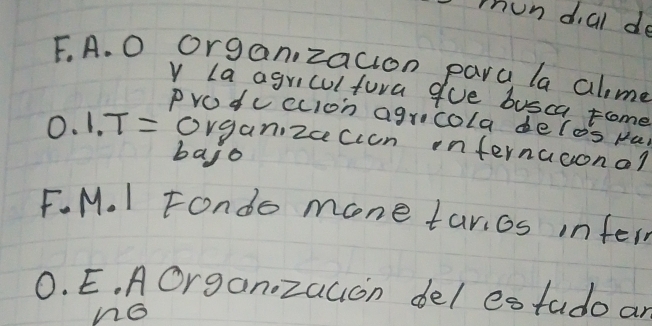 mundial de
F.A.O Organización para la alime
y la agricultura que busca fome
Producción agrícola de los pai
O.I.T = Organización internacional
bajo
F.M.I Fondo monetarios inter
O.E.A Organización del estado am
no